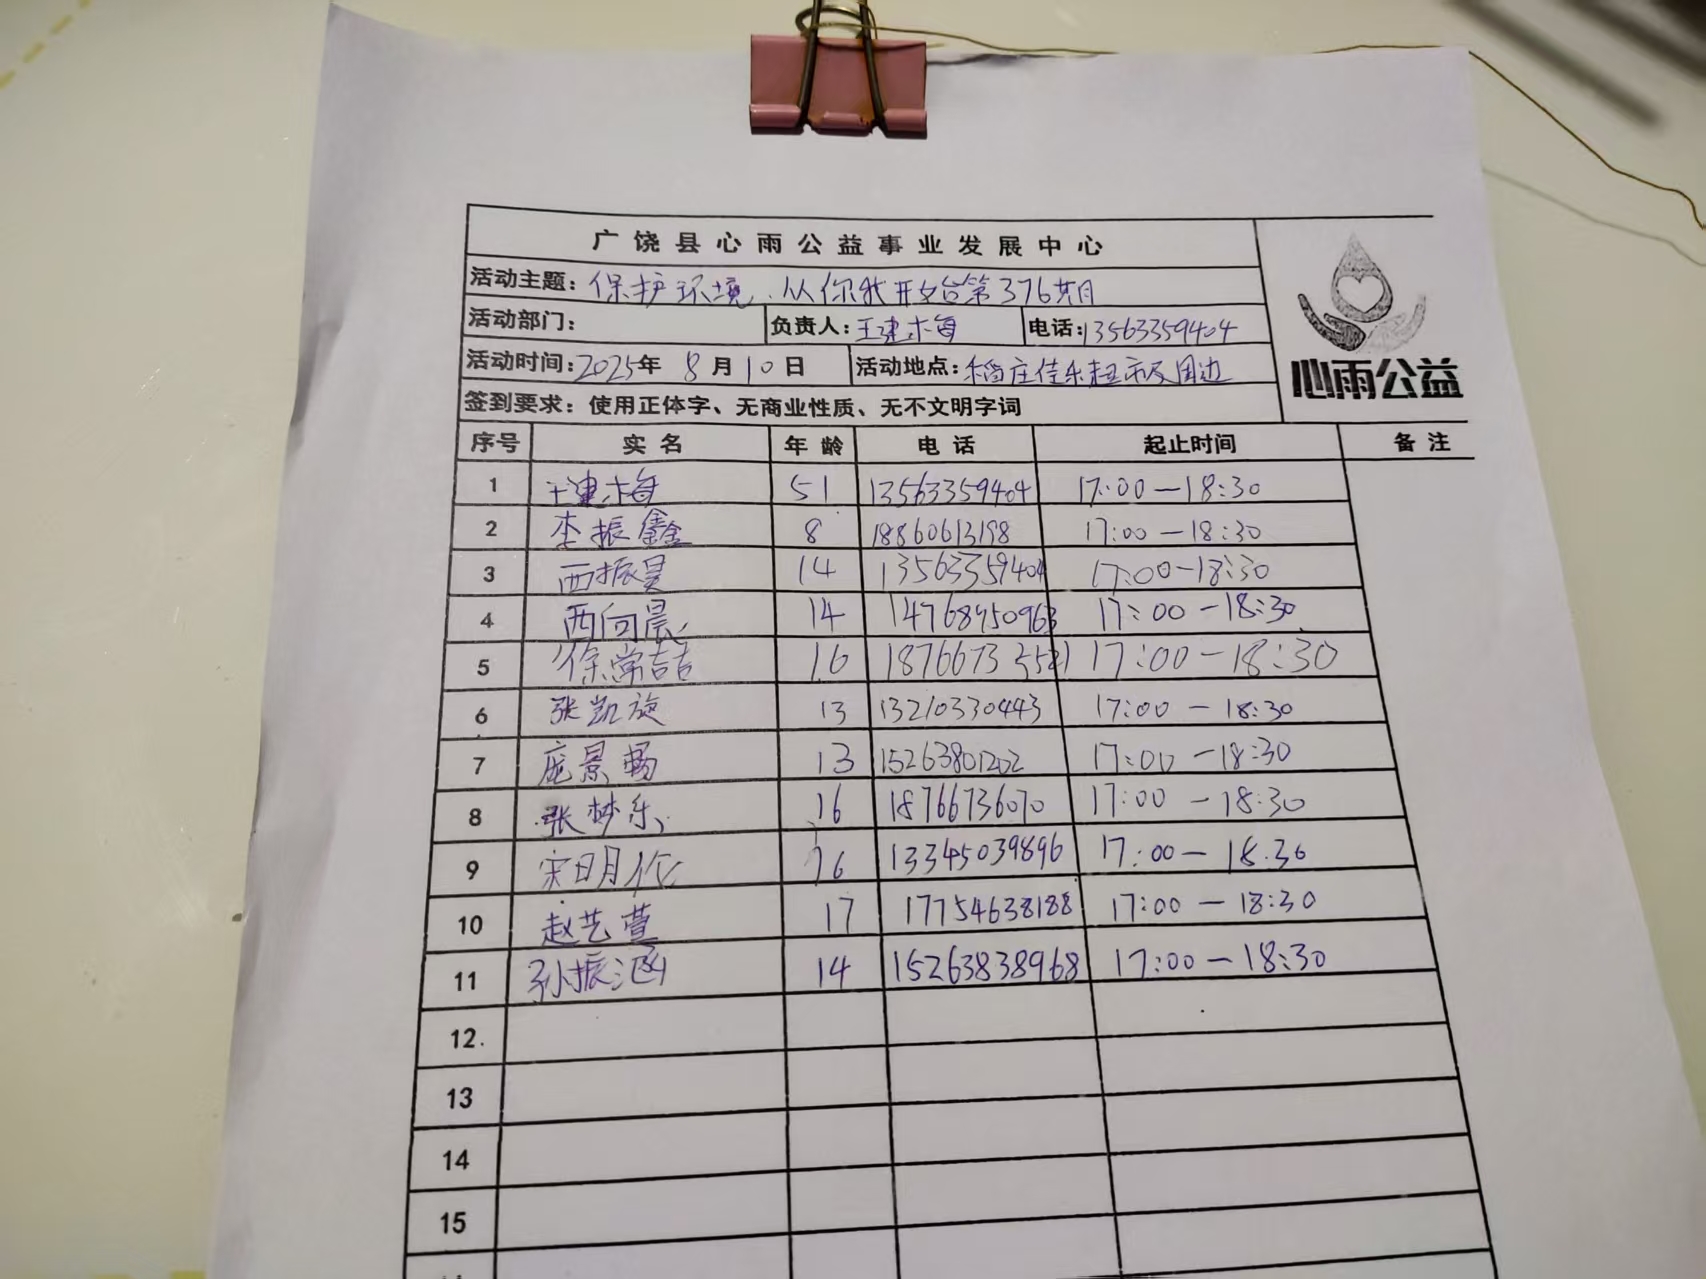 广饶县心雨公益事业发展中心
活动主题：保护环境、从你我开始第376期
活动部门： 负责人：王建梅 电话：13563359404
活动时间：2025年 8月10日 活动地点：稻庄佳乐超市及周边
心雨公益
签到要求：使用正体字、无商业性质、无不文明字词
序号 实名 年龄 电话 起止时间 备注
1 王建梅 51 13563359404 17:00—18:30
2 李振鑫 8 18860613198 17:00—18:30
3 西振昊 14 13563359404 17:00-18:30
4 西向晨 14 14768950963 17:00-18:30
5 徐常喆 16 18766735521 17:00-18:30
6 张凯旋 13 13210330443 17:00-18:30
7 庞景畅 13 15263801202 17:00-18:30
8 张梦乐 16 18766736070 17:00-18:30
9 宋明 16 13345039896 17:00-18:30
10 赵艺萱 17 17754638188 17:00-18:30
11 孙振涵 14 15263838968 17:00-18:30
12.
13
14
15